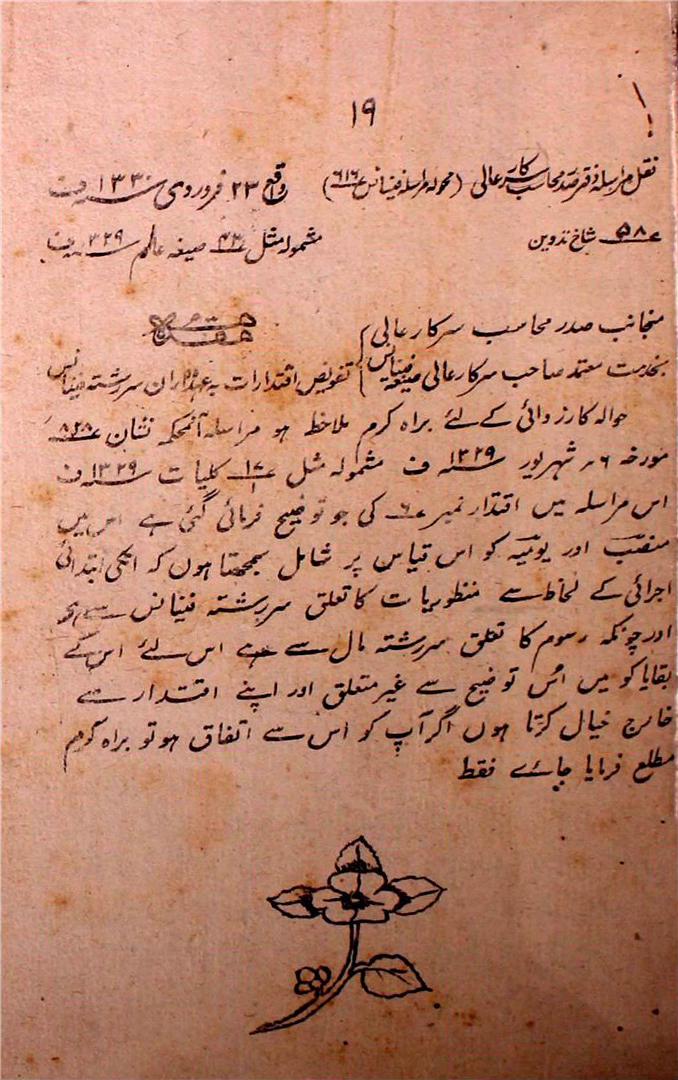 ۱۹
نقل مراسلہ دفتر صدر محاسب سرکار عالی (محولہ مراسلہ فینانس ۶۱۶) واقع ۲۳ فروردی ۱۳۳۰ ف
۵۸ شاخ تدوین مشمولہ مثل ۴۳ صیغہ عام ۱۳۲۹ ف
منجانب صدر محاسب سرکار عالی مقدمہ
بخدمت معتمد صاحب سرکار عالی صیغہ فینانس تفویض اقتدارات بہ عہداران سررشتہ فینانس
حوالہ کارروائی کے لئے براہ کرم ملاحظہ ہو مراسلہ آنمحکمہ نشان ۸۲۸
مورخہ ۶ شہریور ۱۳۲۹ ف مشمولہ مثل ۱۷/۱ کلیات ۱۳۲۹ ف
اس مراسلہ میں اقتدار نمبر ۶ کی جو توضیح فرمائی گئی ہے اس میں
منصب اور یومیہ کو اس قیاس پر شامل سمجھتا ہوں کہ انکی ابتدائی
اجرائی کے لحاظ سے منظوریات کا تعلق سررشتہ فینانس سے ہے
اور چونکہ رسوم کا تعلق سررشتہ مال سے ہے اس لئے اس کے
بقایا کو میں اس توضیح سے غیر متعلق اور اپنے اقتدار سے
خارج خیال کرتا ہوں اگر آپ کو اس سے اتفاق ہو تو براہ کرم
مطلع فرمایا جائے فقط